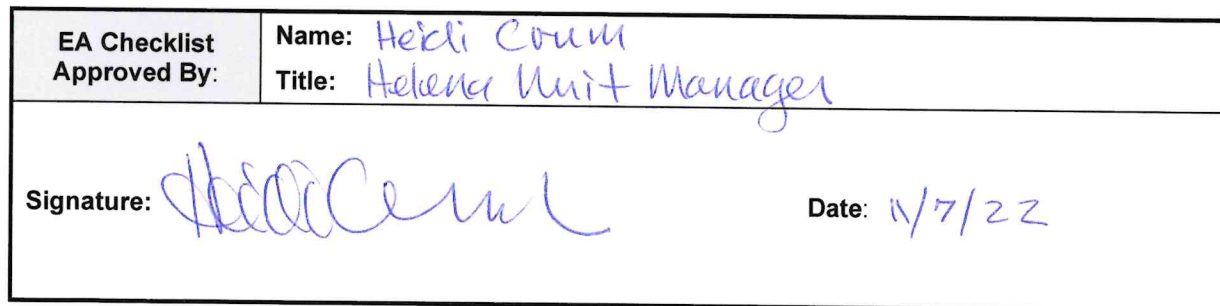 EA Checklist
Approved By:
Name: Heidi Crum
Title: Helena Unit Manager
Signature: Heidi Crum
Date: 11/7/22